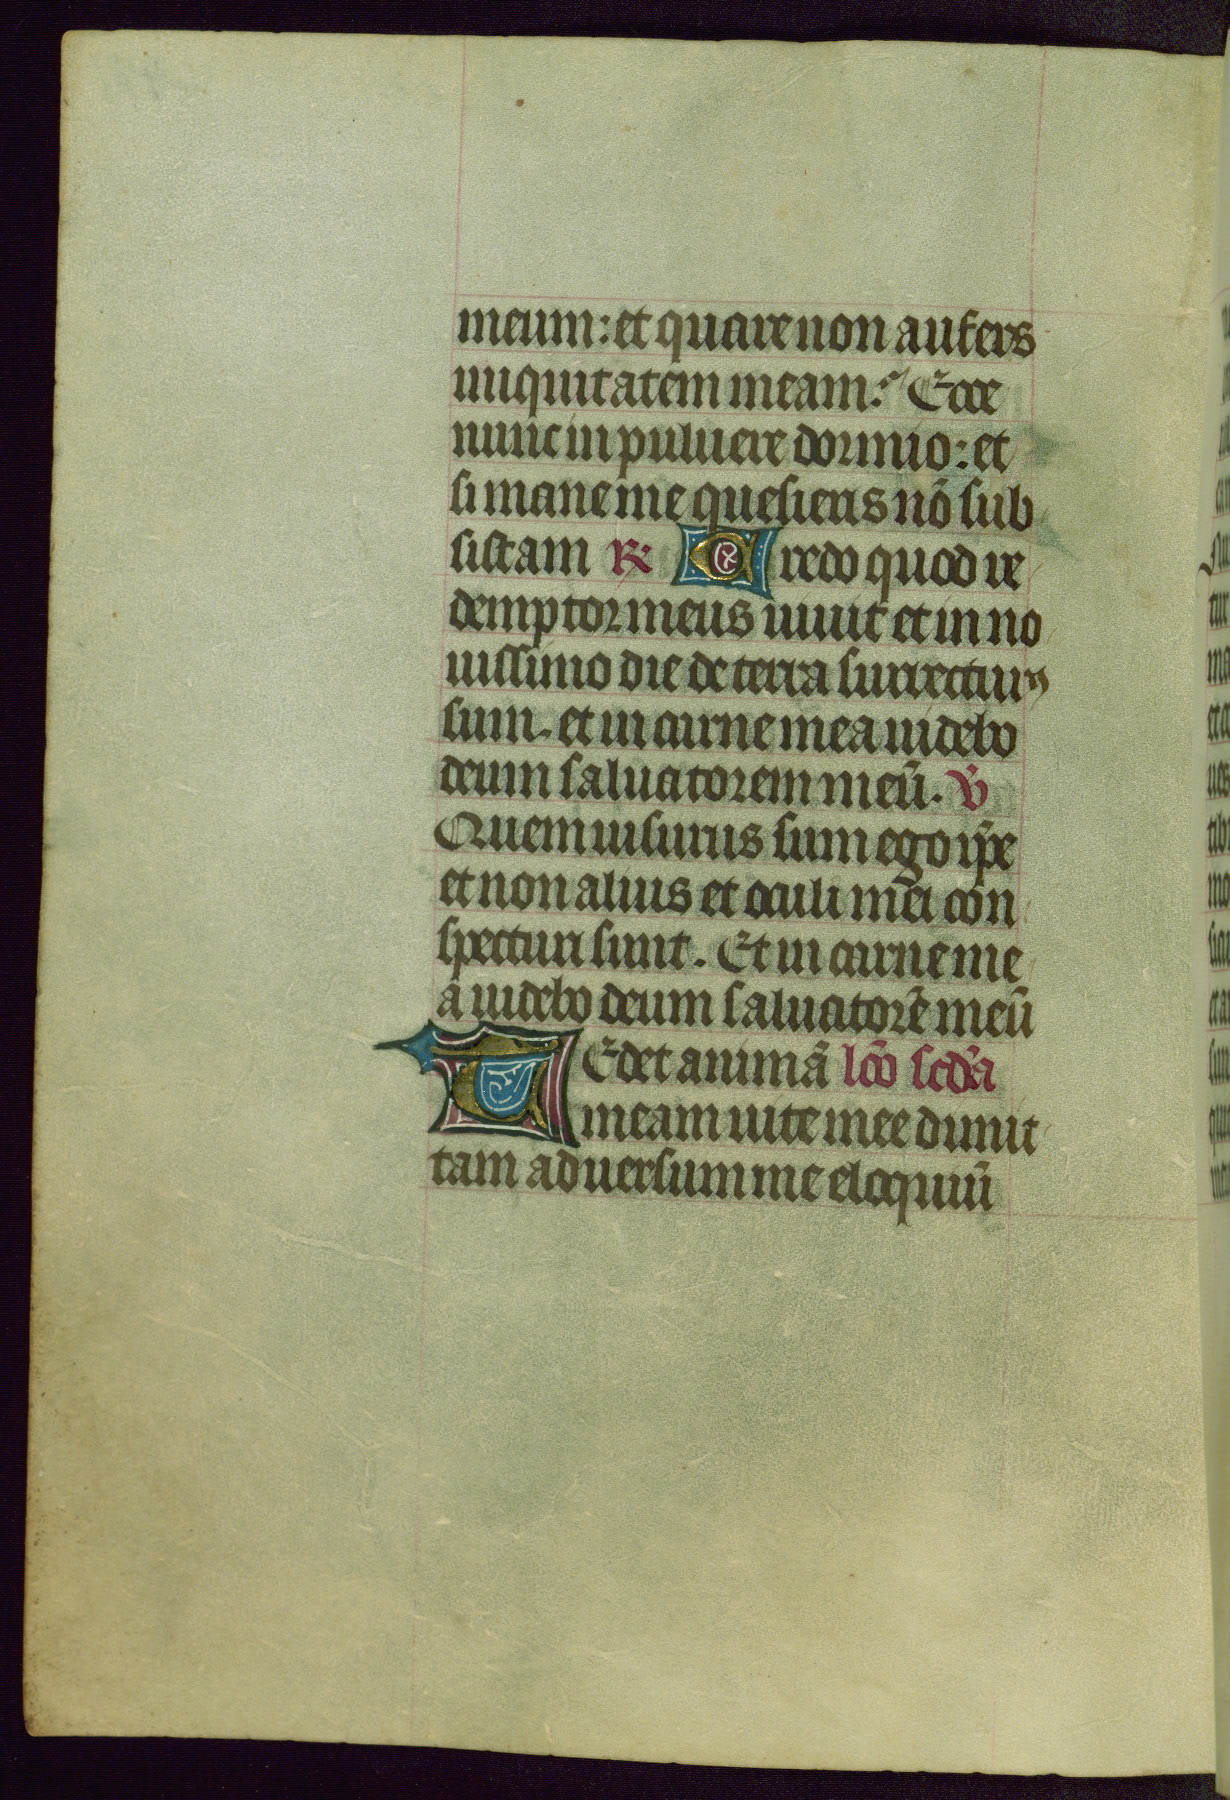 meum: et quare non aufers
iniquitatem meam: Ecce
nunc in puluere dormio: et
si mane me quesieris nō sub
sistam ℟ Credo quod re
demptor meus uiuit et in no
uissimo die de terra surrecturꝰ
sum. et in carne mea uidebo
deum saluatorem meū. ℣
Quem uisurus sum ego ip̄e
et non alius et oculi mei con
specturi sunt. Et in carne me
a uidebo deum saluatorē meū
TEdet animā lc̄o scd̄a
meam uite mee dimit
tam aduersum me eloquiū